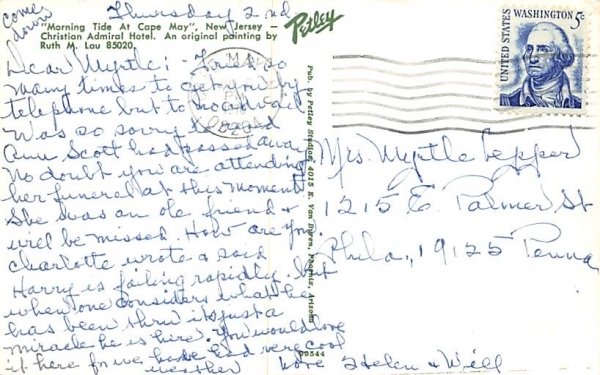 Come
down
Thursday 2nd
"Morning Tide At Cape May", New Jersey –
Christian Admiral Hotel. An original painting by
Ruth M. Lau 85020.
Petley
UNITED STATES
WASHINGTON 5c
Pub. by Petley Studios, 4015 E. Van Buren, Phoenix, Arizona
Dear Myrtle:- Tried so
many times to get you by
telephone but to no avail
Was so sorry to
Ann Scott had passed away
No doubt you are attending
her funeral at this moment
She was an ole friend &
will be missed. How are you
Charlotte wrote & said
Harry is failing rapidly. but
when one considers what he
has been thru its just a
miracle he is here. You would love
it here for we have had very cool
weather
Love Helen & Will
Mrs. Myrtle Lepper
1215 E Palmer St
Phila, 19125 Penna
99544